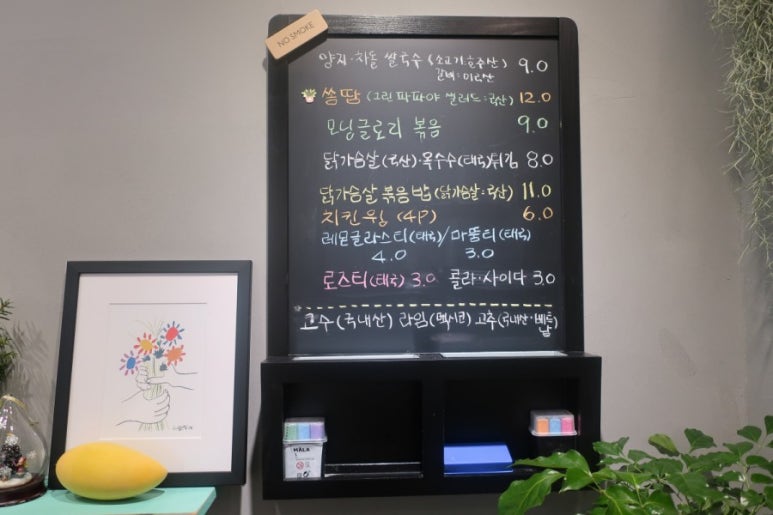 NO SMOKE
양지·차돌 쌀국수 (소고기:호주산) 9.0
갈비:미국산
쏨땀 (그린파파야 샐러드:국산) 12.0
모닝글로리 볶음 9.0
닭가슴살(국산)·옥수수(태국)튀김 8.0
닭가슴살 볶음밥 (닭가슴살:국산) 11.0
치킨윙 (4P) 6.0
레몬글라스티(태국)/마뚬티(태국)
4.0 3.0
로즈티(태국) 3.0 콜라·사이다 3.0
고수(국내산) 라임(멕시코) 고추(국내산·베트남)
MÅLA